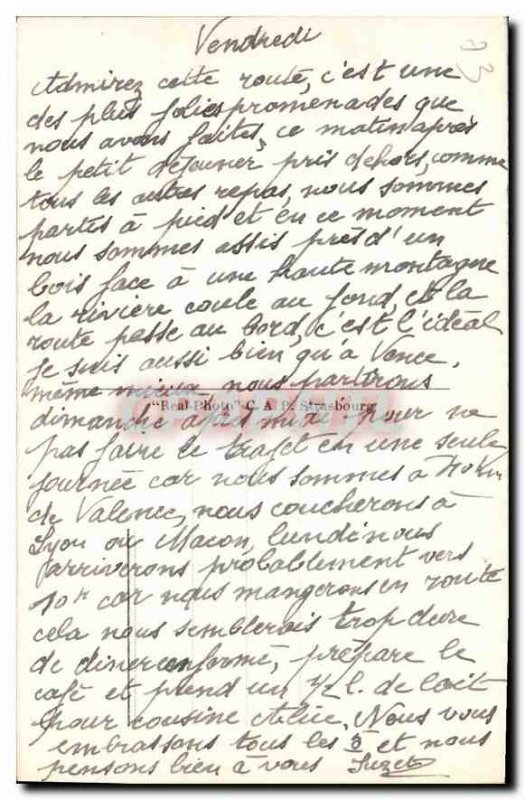 Vendredi
Admirez cette route, c'est une
des plus jolies promenades que
nous avons faites, ce matin après
le petit déjeuner pris dehors, comme
tous les autres repas, nous sommes
partis à pied et en ce moment
nous sommes assis près d'un
bois face à une haute montagne
la rivière coule au fond, et la
route passe au bord, c'est l'idéal
Je suis aussi bien qu'à Vence,
même mieux, nous partirons
"Real-Photo" C. A. P. Strasbourg
dimanche après midi pour ne
pas faire le trajet en une seule
journée car nous sommes à Km
de Valence, nous coucherons à
Lyon ou Macon, lundi nous
arriverons probablement vers
10h car nous mangerons en route
cela nous semblerais trop dure
de diner enfermé, prépare le
café et prend un 1/2 l. de lait
pour cousine Alice. Nous vous
embrassons tous les 5 et nous
pensons bien à vous Suzet